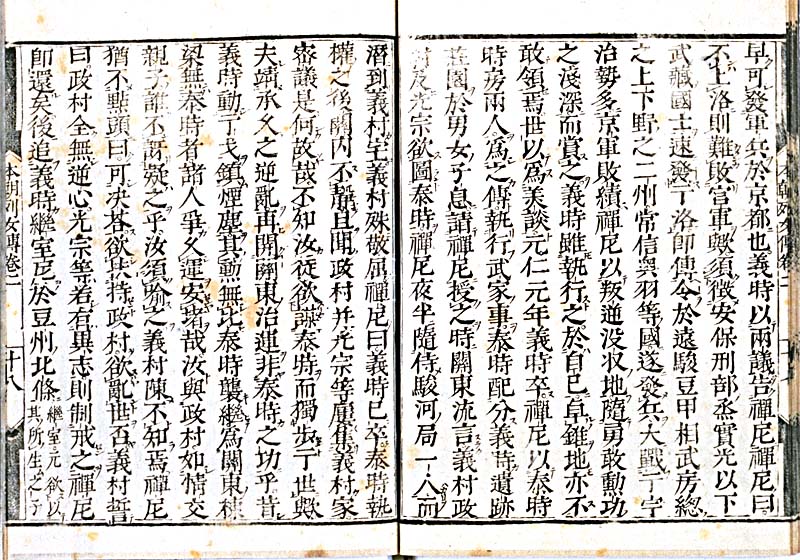 早可發軍兵於京都也義時以兩議告禪尼禪尼曰
不上洛則難敗官軍歟須徴安保刑部丞實光以下
武藏國士速發于洛即傳令於遠駿豆甲相武房總
之上下野之二州常信奥羽等國遂發兵大戰于宇
治勢多京軍敗績禪尼以叛逆没収地隨勇敢勳功
之淺深而賞之義時雖執行之於自已卓錐地亦不
敢領焉世以爲美談元仁元年義時卒禪尼以泰時
時房兩人爲之傳執行武家事泰時配分義時遺跡
莊園於男女子息請禪尼授之時關東流言義村政
村及光宗欲圖泰時禪尼夜半隨侍駿河局一人而
本朝列女傳卷二
潛到義村宅義村殊敬屈禪尼曰義時已卒泰時執
權之後關内不靜且聞政村并光宗等屢集義村家
密議是何故哉不如汝從欲謀泰時而獨歩于世歟
夫靖承久之逆亂再開關東治運非泰時之功乎昔
義時動干戈鎮煙塵其勲無比泰時襲繼爲關東棟
梁無泰時者諸人爭久運安堵哉汝與政村如情交
親子誰不訝疑之乎汝須喻之義村陳不知焉禪尼
猶不點頭曰可决荅欲共持政村欲亂世否義村誓
曰政村全無逆心光宗等若有異志則制戒之禪尼
即還矣後追義時繼室尼於豆州北條繼室元欲以其所生之子
本朝列女傳卷二
十八